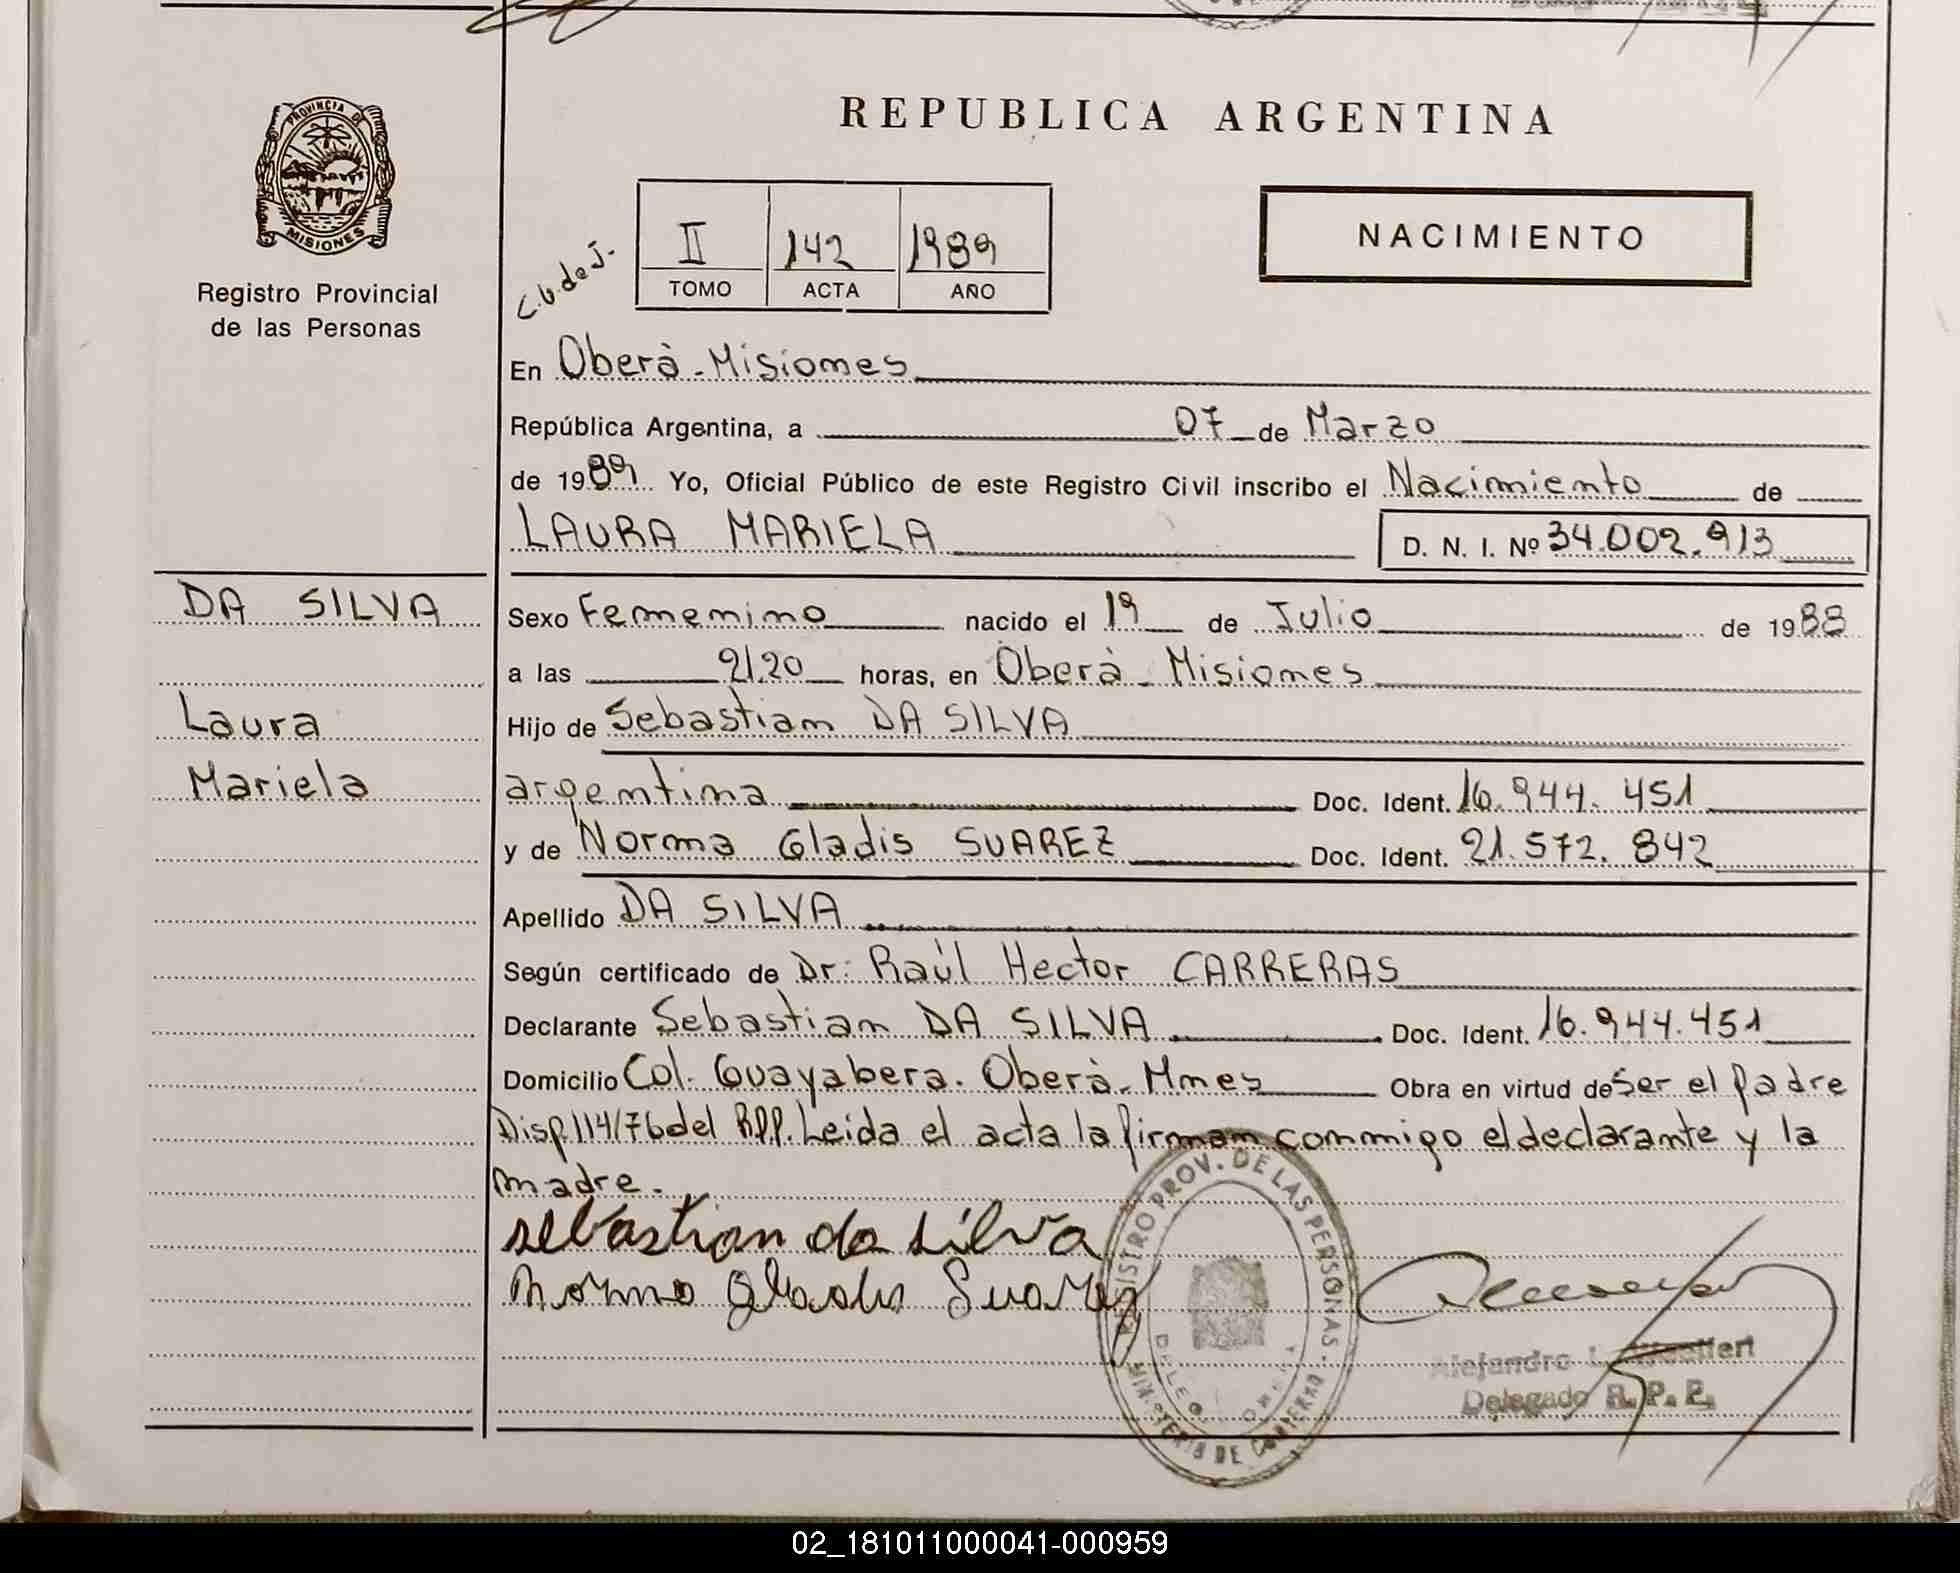 PROVINCIA DE
MISIONES
Registro Provincial
de las Personas
REPUBLICA ARGENTINA
NACIMIENTO
II 142 1989
TOMO ACTA AÑO
En Oberà - Misiones
República Argentina, a 07 de Marzo
de 1989 Yo, Oficial Público de este Registro Civil inscribo el Nacimiento de
LAURA MARIELA D. N. I. Nº 34.002.913
DA SILVA
Laura
Mariela
Sexo Femenino nacido el 19 de Julio de 1988
a las 21.20 horas, en Oberà - Misiones
Hijo de Sebastian DA SILVA
argentina Doc. Ident. 16.944.451
y de Norma Gladis SUAREZ Doc. Ident. 21.572.842
Apellido DA SILVA
Según certificado de Dr: Raúl Hector CARRERAS
Declarante Sebastian DA SILVA Doc. Ident. 16.944.451
Domicilio Col. Guayabera. Oberà - Mnes Obra en virtud de Ser el Padre
Disp. 114/76 del RPP. Leida el acta la firman conmigo el declarante y la
madre.
sebastian da silva
Norma Gladis Suarez
REGISTRO PROV. DE LAS PERSONAS -
MINISTERIO DE GOBIERNO
Alejandro
Delegado R. P. P.
02_181011000041-000959